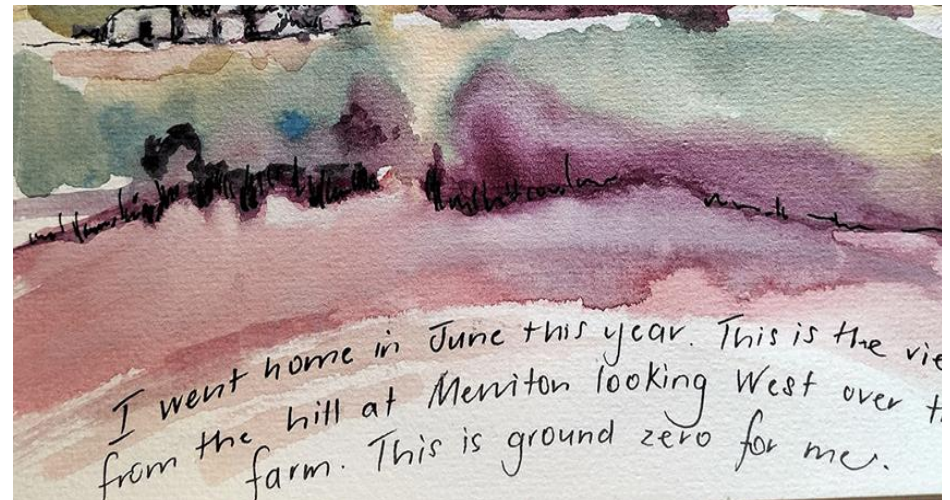 I went home in June this year. This is the vie
from the hill at Merriton looking West over t
farm. This is ground zero for me.